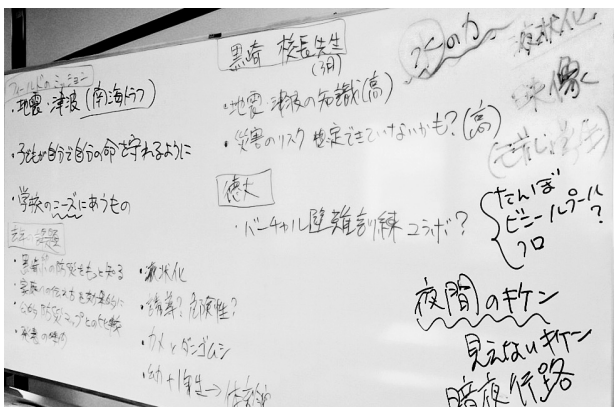 フィールドのミッション
・地震・津波(南海トラフ)
・子どもが自分で自分の命を守れるように
・学校のニーズにあうもの
・黒崎の防災をもっと知る
・液状化
・誘導?危険性?
・カメとダンゴムシ
・幼+1年生→
黒崎 校長先生
(3月)
・地震・津波の知識(高)
・災害のリスク 想定できていないかも?(高)
徳大
・バーチャル避難訓練 コラボ?
水の力
液状化
映像
たんぼ
ビニールプール
?
フロ
夜間のキケン
見えないキケン
暗夜行路